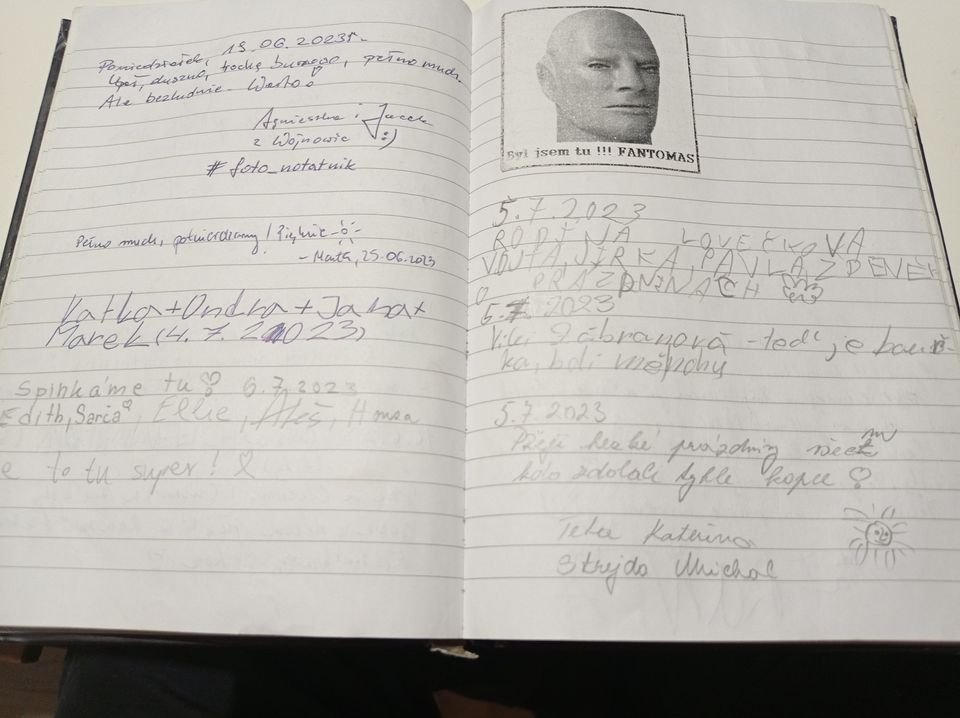 Poniedziałek, 19.06.2023r.
Upał, duszno, trochę burzowo, pełno much.
Ale bezludnie. Warto
Agnieszka i Jacek
z Wojnowic :)
# foto_notatnik
Pełno much, potwierdzamy! Pięknie
- Marta, 25.06.2023
Katka+Ondra+Jana+
Marek (4.7.2023)
Spinkáme tu 6.7.2023
Edith, Sarča, Ellie, Aleš, Honza
e to tu super!
Byl jsem tu !!! FANTOMAS
5.7.2023
RODINA LOVEČKOVA
VOJTA, JIRKA, PAVLA, ZDENEK
PRÁZDNINÁCH
6.7.2023
- teď je bouř-
ka,
5.7.2023
Přeji hezké prázdniny všem
kdo zdolali tyhle kopce
Teta Kateřina
Strejda Michal